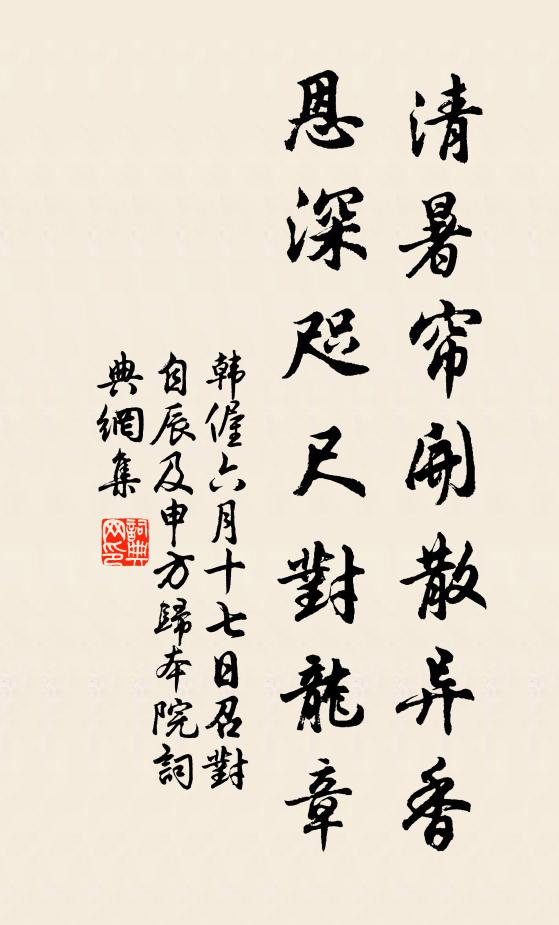 清暑帘開散异香
恩深咫尺對龍章
韩偓六月十七日召對
自辰及申方歸本院詞
典網集
詞典网印